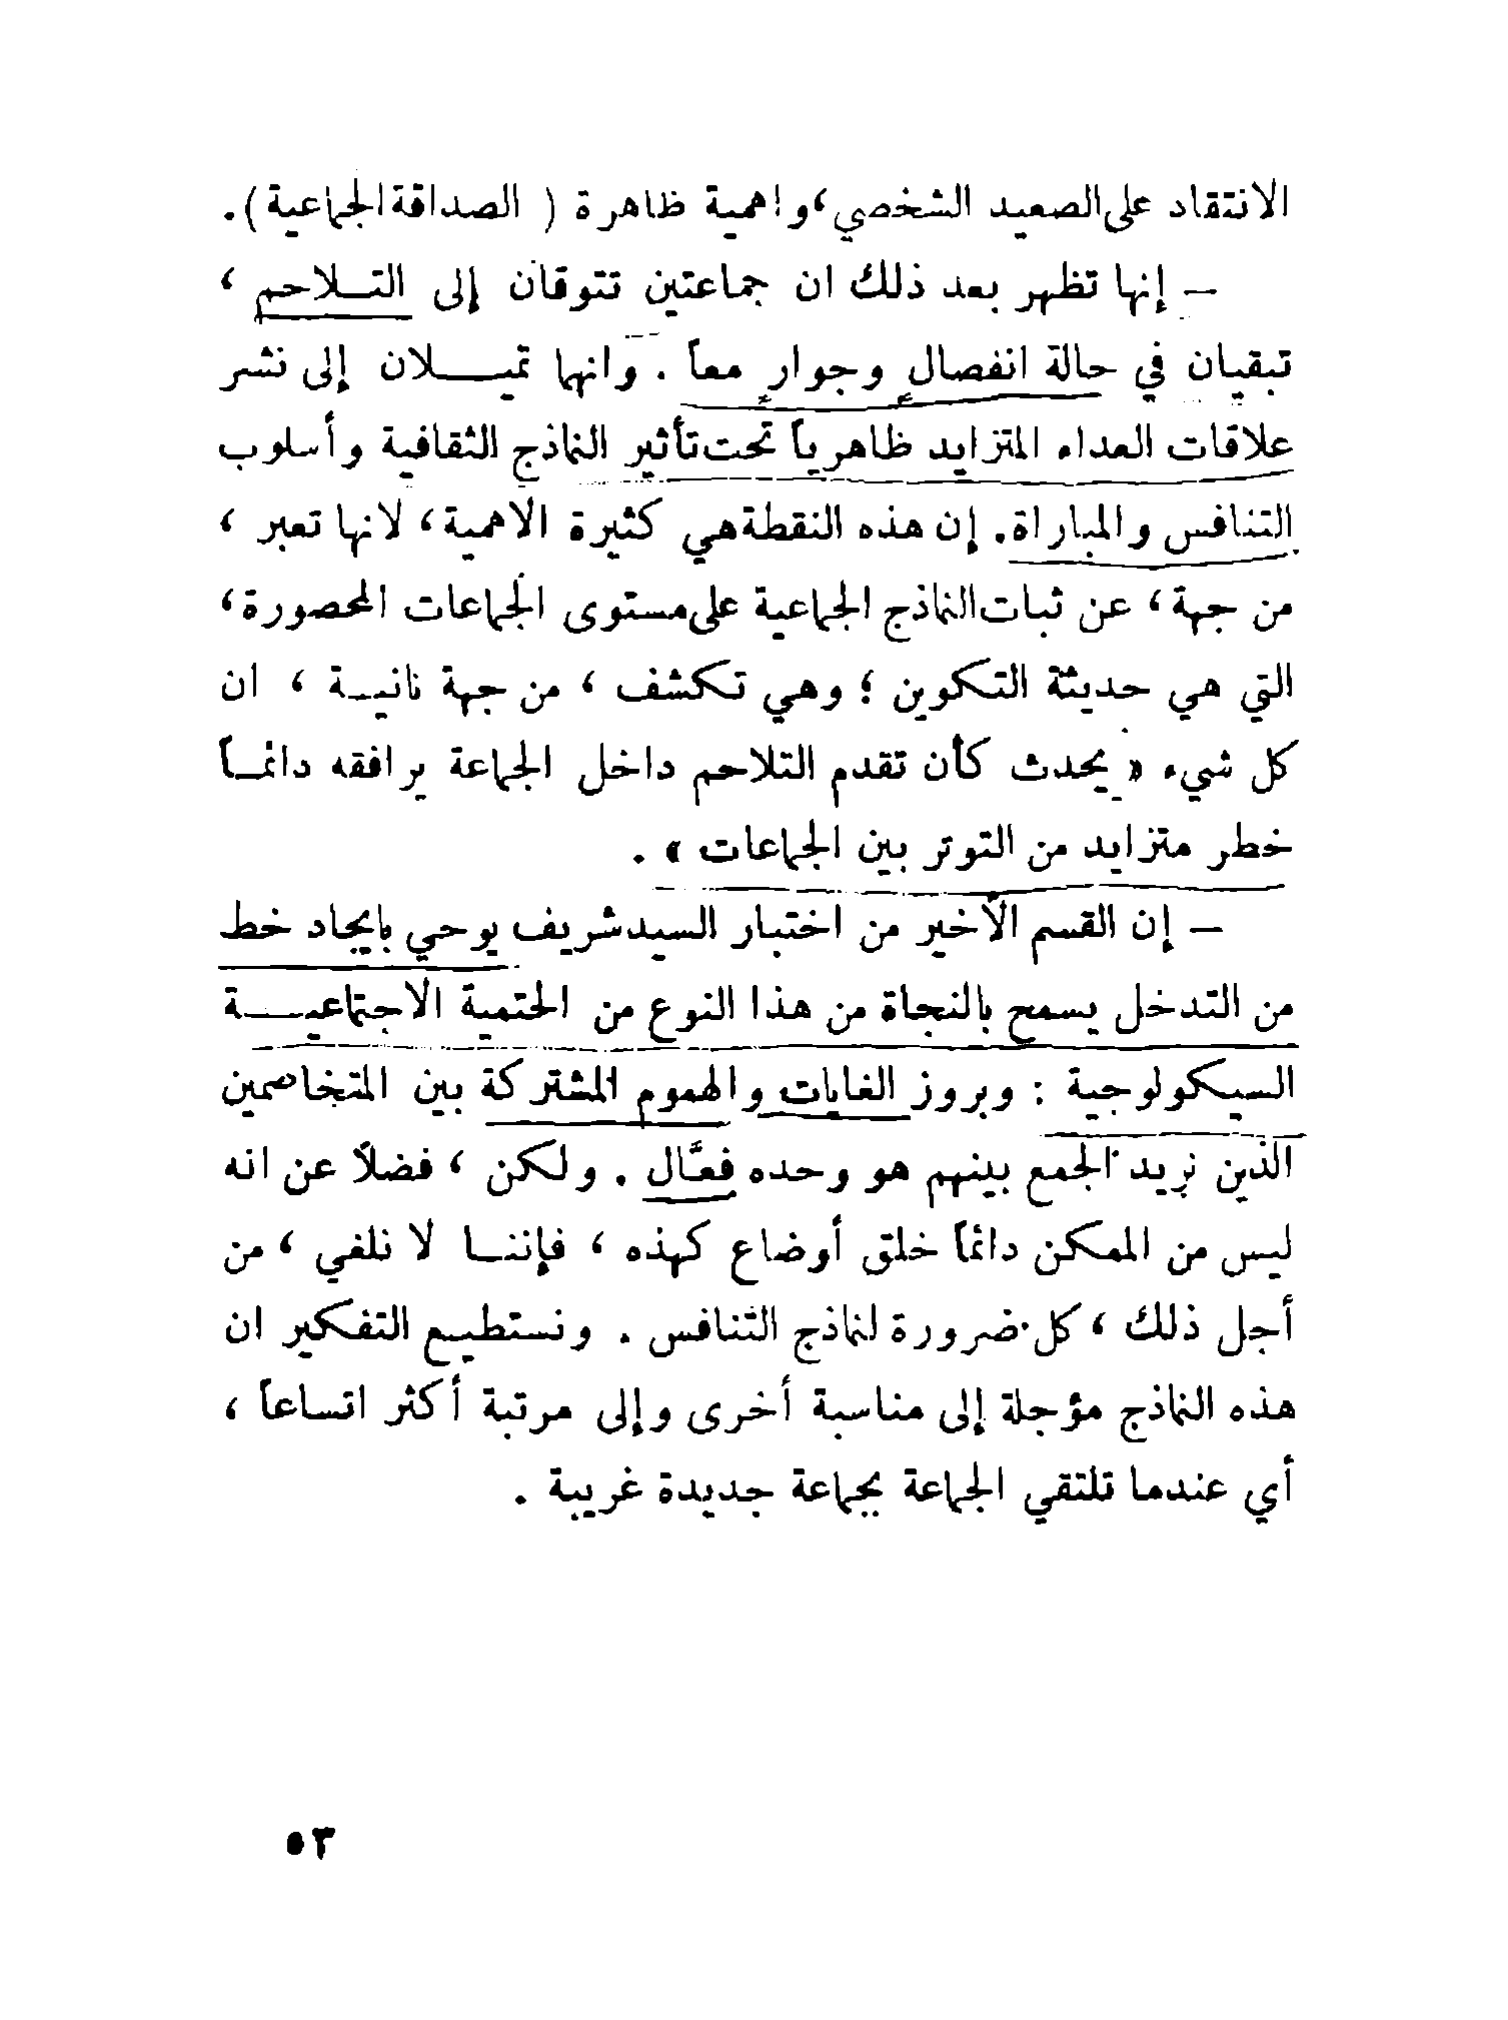 الانتقاد على الصعيد الشخصي ، واهمية ظاهرة ( الصداقة الجماعية ) .
– إنها تظهر بعد ذلك ان جماعتين تتوقان إلى التــلاحم ،
تبقيان في حالة انفصالٍ وجوارٍ معاً . وانهما تميــــلان إلى نشر
علاقات العداء المتزايد ظاهرياً تحت تأثير النماذج الثقافية وأسلوب
التنافس والمباراة . إن هذه النقطة هي كثيرة الاهمية ، لانها تعبر ،
من جهة ، عن ثبات النماذج الجماعية على مستوى الجماعات المحصورة ،
التي هي حديثة التكوين ؛ وهي تكشف ، من جهة ثانيــة ، ان
كل شيء « يحدث كأن تقدم التلاحم داخل الجماعة يرافقه دائمــاً
خطر متزايد من التوتر بين الجماعات » .
– إن القسم الأخير من اختبار السيد شريف يوحي بايجاد خط
من التدخل يسمح بالنجاة من هذا النوع من الحتمية الاجتماعيــــة
السيكولوجية : وبروز الغايات والهموم المشتركة بين المتخاصمين
الذين نريد الجمع بينهم هو وحده فعَّال . ولكن ، فضلاً عن انه
ليس من الممكن دائماً خلق أوضاع كهذه ، فإننــا لا نلغي ، من
أجل ذلك ، كل ضرورة لنماذج التنافس . ونستطيــع التفكير ان
هذه النماذج مؤجلة إلى مناسبة أخرى وإلى مرتبة أكثر اتساعاً ،
أي عندما تلتقي الجماعة بجماعة جديدة غريبة .
٥٣